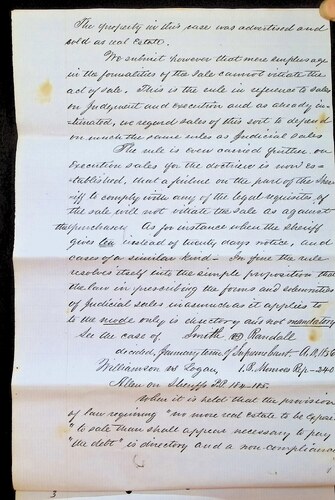 The property in this case was advertised and
sold as real Estate.
We submit however that mere surplusage
in the formalities of the sale cannot vitiate the
act of sale. This is the rule in reference to sales
on Judgment and execution and as already in-
timated, we regard sales of this sort to depend
on much the same rules as Judicial sales
The rule is even carried further, on
execution sales for the doctrine is now es-
tablished, that a failure on the part of the Sher-
iff to comply with any of the legal requisites of
the sale will not vitiate the sale as against
the purchaser. As for instance when the sheriff
gives ten instead of twenty days notice, and
cases of a similar kind - In fine the rule
resolves itself into the simple proposition that
the law in prescribing the forms and solemnities
of Judicial sales inasmuch as it applies to
to the mode only is directory and not mandatory
See the case of Smith vs Randall
decided, January term of Supreme Court. A.D. 1856
Williamson vs Logan, 1. B. Monroe Rep - 240
Allen on Sheriffs 184-185.
When it is held that the provision
of law requiring "no more real estate to be expose
"to sale than shall appear necessary to pay
"the debt" is directory and a non-compliance
3